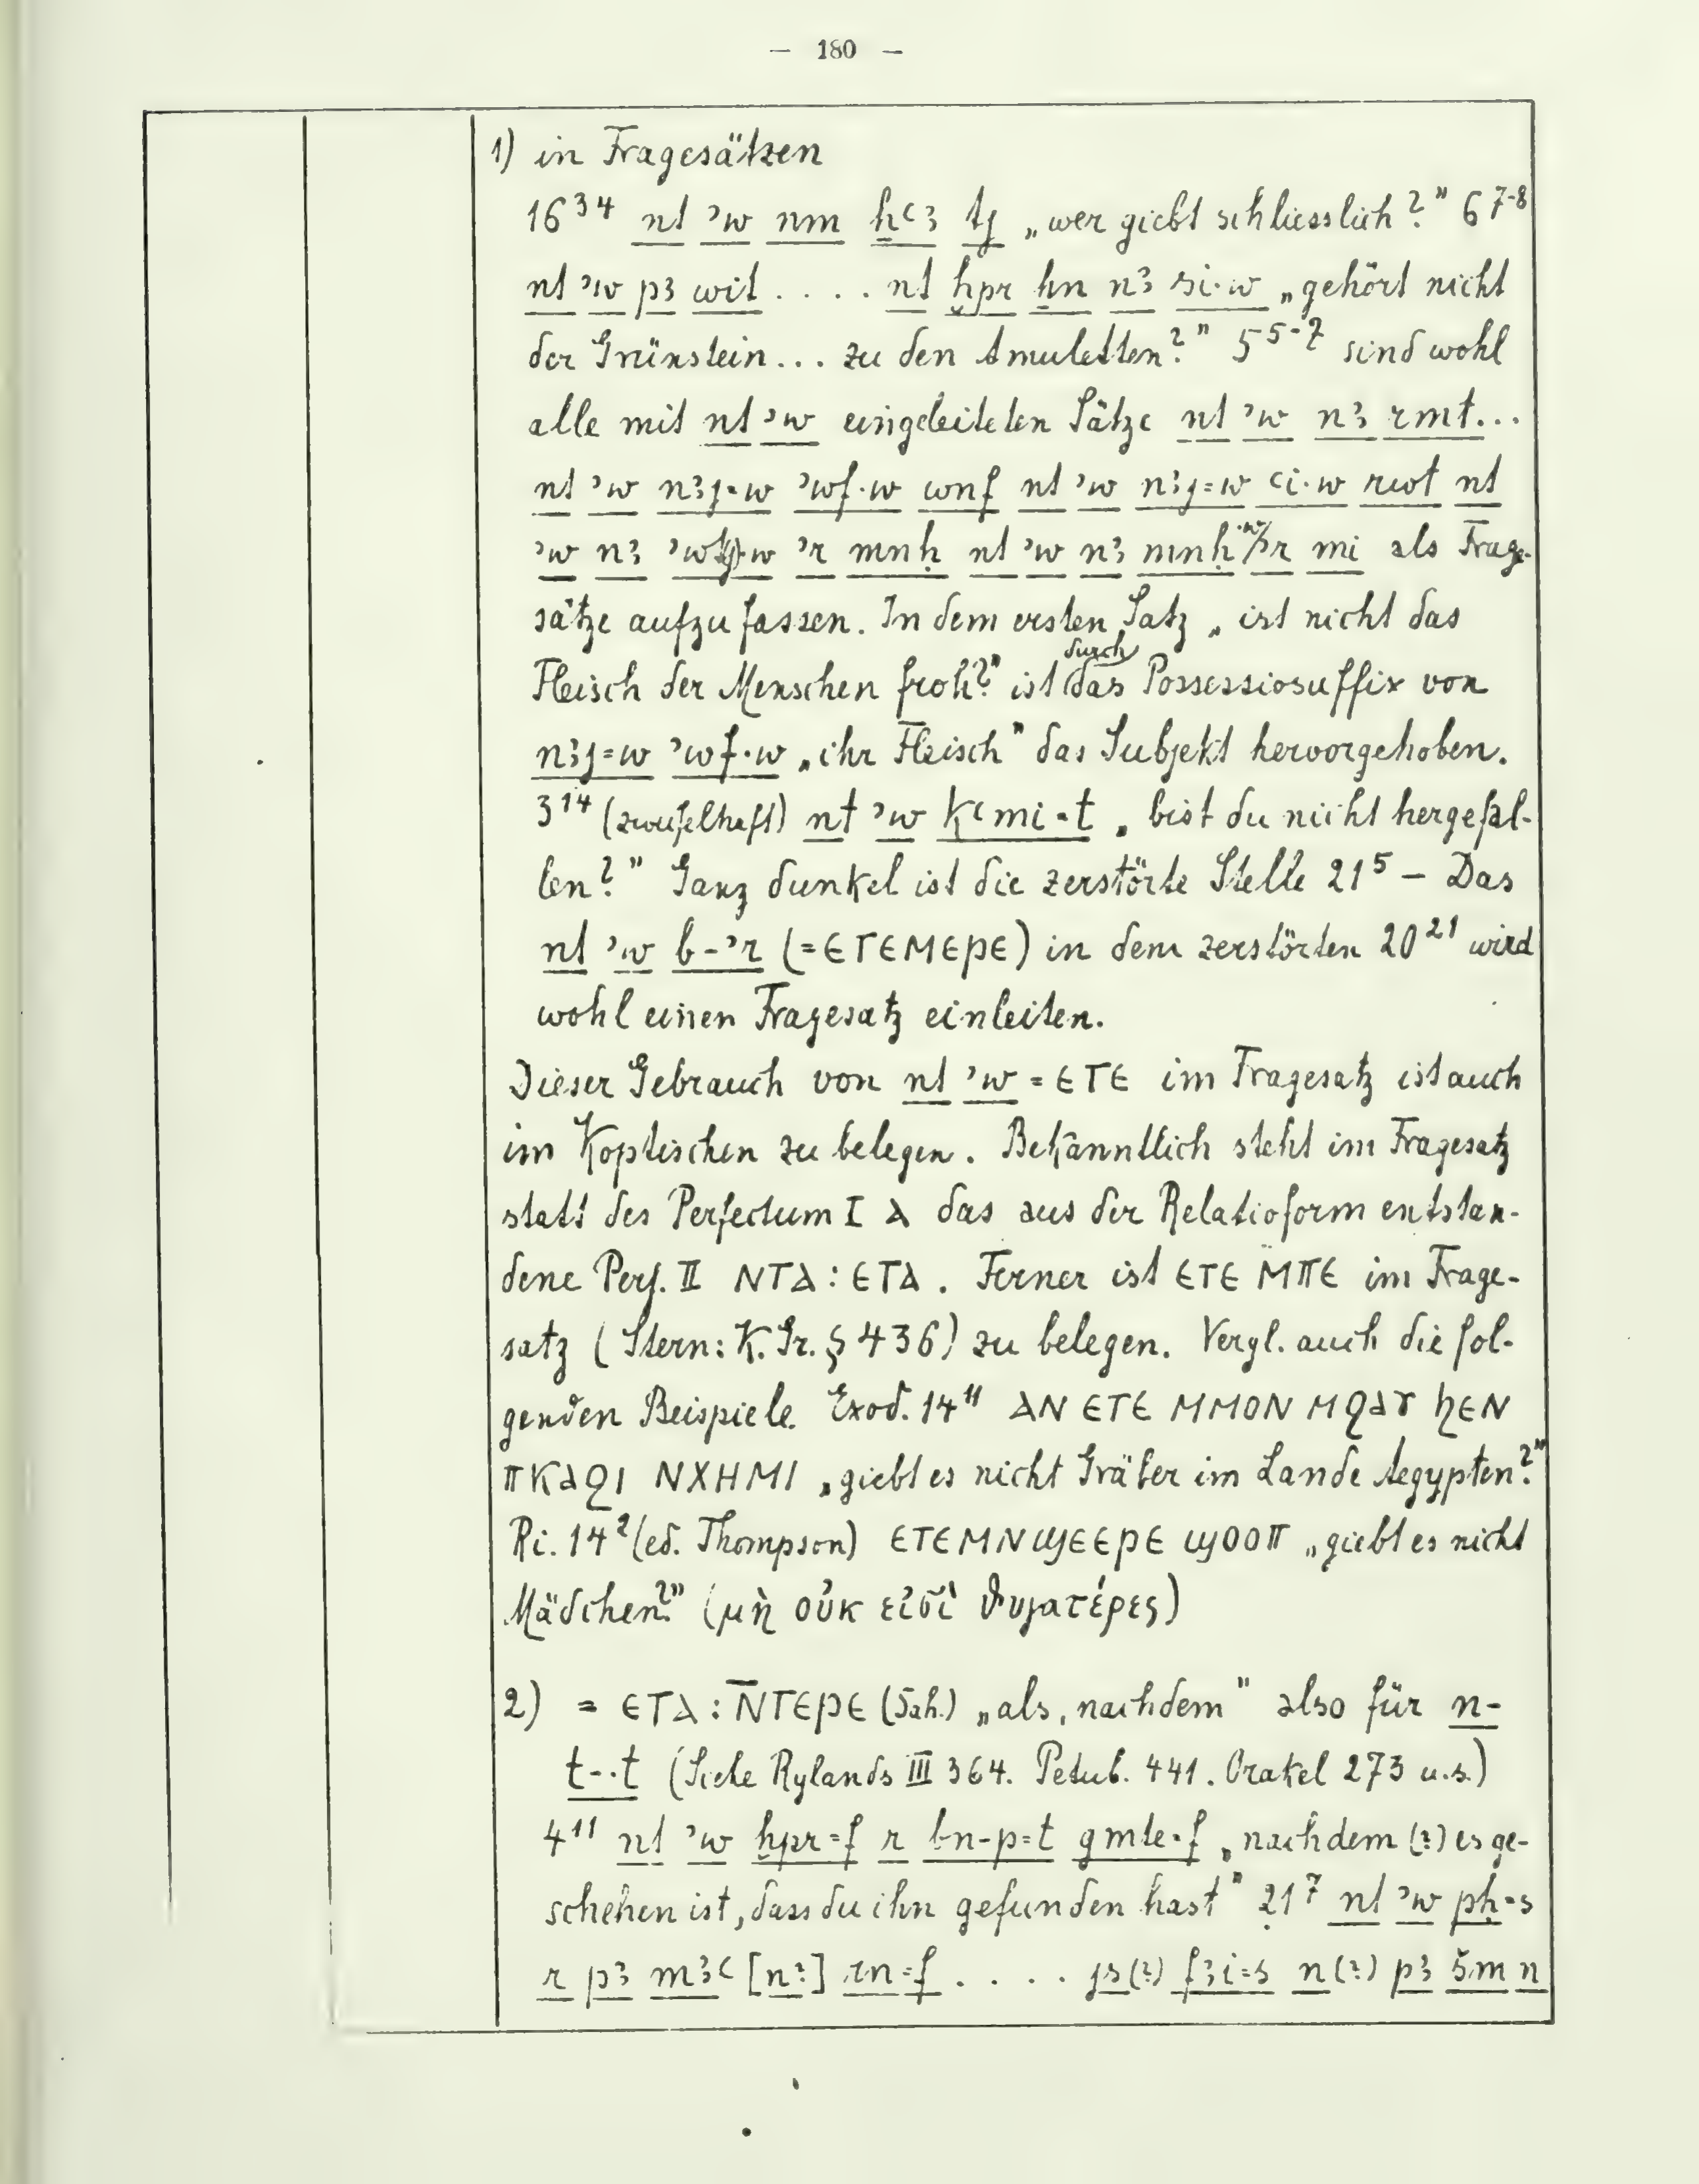 — 180 —
1) in Fragesätzen
16³⁴ nt ʾw nm ḥʿꜣ tj „wer giebt schliesslich?" 6⁷⁻⁸
nt ʾw pꜣ wit . . . . nt ḫpr ẖn nꜣ si·w „gehört nicht
der Grünstein... zu den Amuletten?" 5⁵⁻⁷ sind wohl
alle mit nt ʾw eingeleiteten Sätze nt ʾw nꜣ rmt...
nt ʾw nꜣj=w ʾwf·w wnf nt ʾw nꜣj=w ʿi·w rwt nt
ʾw nꜣ ʾr mnḥ nt ʾw nꜣ mnḥ·w ʾr mi als Frage-
sätze aufzufassen. In dem ersten Satz „ist nicht das
Fleisch der Menschen froh?" ist durch das Possessivsuffix von
nꜣj=w ʾwf·w „ihr Fleisch" das Subjekt hervorgehoben.
3¹⁴ (zweifelhaft) nt ʾw kʿmi·t „bist du nicht hergefal-
len?" Ganz dunkel ist die zerstörte Stelle 21⁵ – Das
nt ʾw b-ʾr (=ⲉⲧⲉⲙⲉⲣⲉ) in dem zerstörten 20²¹ wird
wohl einen Fragesatz einleiten.
Dieser Gebrauch von nt ʾw = ⲉⲧⲉ im Fragesatz ist auch
im Koptischen zu belegen. Bekanntlich steht im Fragesatz
statt des Perfectum I ⲁ das aus der Relativform entstan-
dene Perf. II ⲛⲧⲁ : ⲉⲧⲁ. Ferner ist ⲉⲧⲉ ⲙⲡⲉ im Frage-
satz (Stern: K. Gr. § 436) zu belegen. Vergl. auch die fol-
genden Beispiele. Exod. 14¹¹ ⲁⲛ ⲉⲧⲉ ⲙⲙⲟⲛ ⲙϩⲁⲩ ϧⲉⲛ
ⲡⲕⲁϩⲓ ⲛⲭⲏⲙⲓ „giebt es nicht Gräber im Lande Aegypten?"
Ri. 14² (ed. Thompson) ⲉⲧⲉⲙⲛϣⲉⲉⲣⲉ ϣⲟⲟⲡ „giebt es nicht
Mädchen?" (μὴ οὐκ εἰσὶ θυγατέρες)
2) = ⲉⲧⲁ : ⲛ̄ⲧⲉⲣⲉ (Sah.) „als, nachdem" also für n-
t-·t (Siehe Rylands III 364. Petub. 441. Orakel 273 u.s.)
4¹¹ nt ʾw ḫpr=f r bn-p=t gmte·f „nachdem (?) es ge-
schehen ist, dass du ihn gefunden hast" 21⁷ nt ʾw pḥ=s
r pꜣ mꜣʿ [n?] rn=f . . . . js(?) fꜣi=s n(?) pꜣ šm n